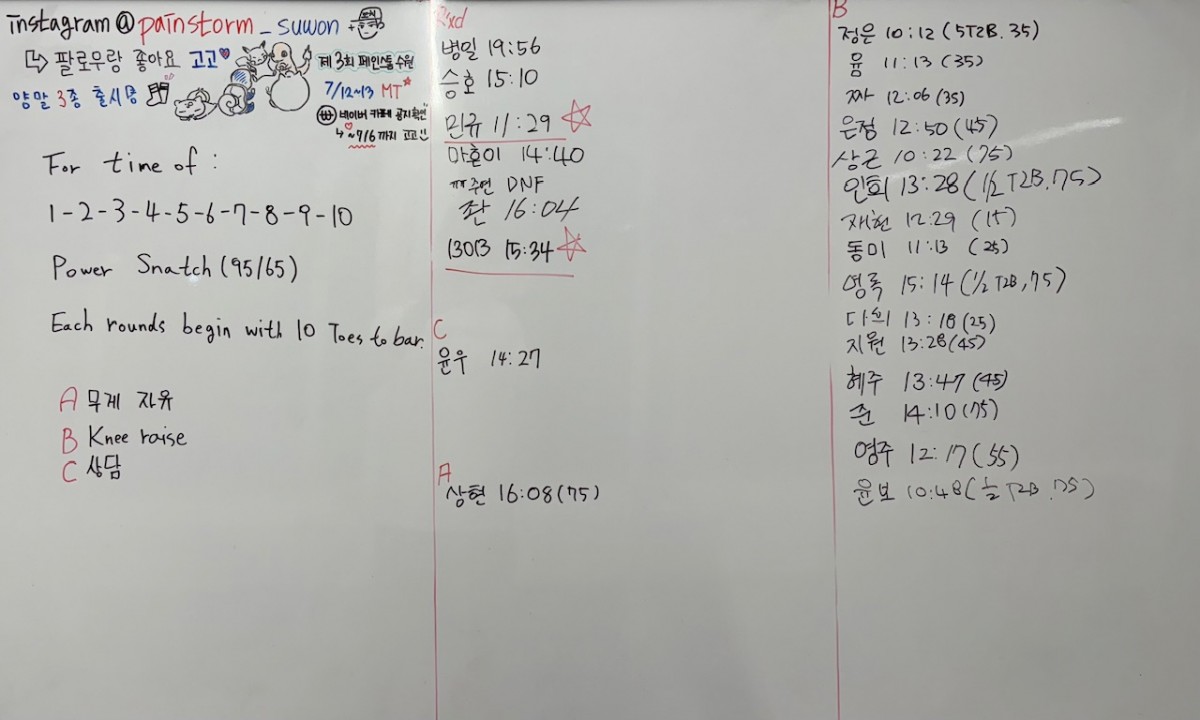 instagram@painstorm_suwon
팔로우랑 좋아요 고고
양말 3종 출시중
제 3회 페인스톰 수원
7/12~13 MT
네이버 카페 공지확인
~7/6 까지 고고!!
For time of :
1-2-3-4-5-6-7-8-9-10
Power Snatch (95/65)
Each rounds begin with 10 Toes to bar.
A 무게 자유
B Knee raise
C 상담
Rxd
병일 19:56
승호 15:10
민규 11:29
마혼이 14:40
ㅠㅠ주연 DNF
좐 16:04
15:34
C
윤우 14:27
A
상현 16:08(75)
B
정은 10:12 (5T2B. 35)
윰 11:13 (35)
짜 12:06 (35)
은정 12:50 (45)
상근 10:22 (75)
인회 13:28 (1/2 T2B, 75)
재현 12:29 (15)
동미 11:13 (25)
영록 15:14 (1/2 T2B, 75)
다희 13:18 (25)
지원 13:28 (45)
혜주 13:47 (45)
준 14:10 (75)
영주 12:17 (55)
윤보 10:48 (1/2 T2B, 75)